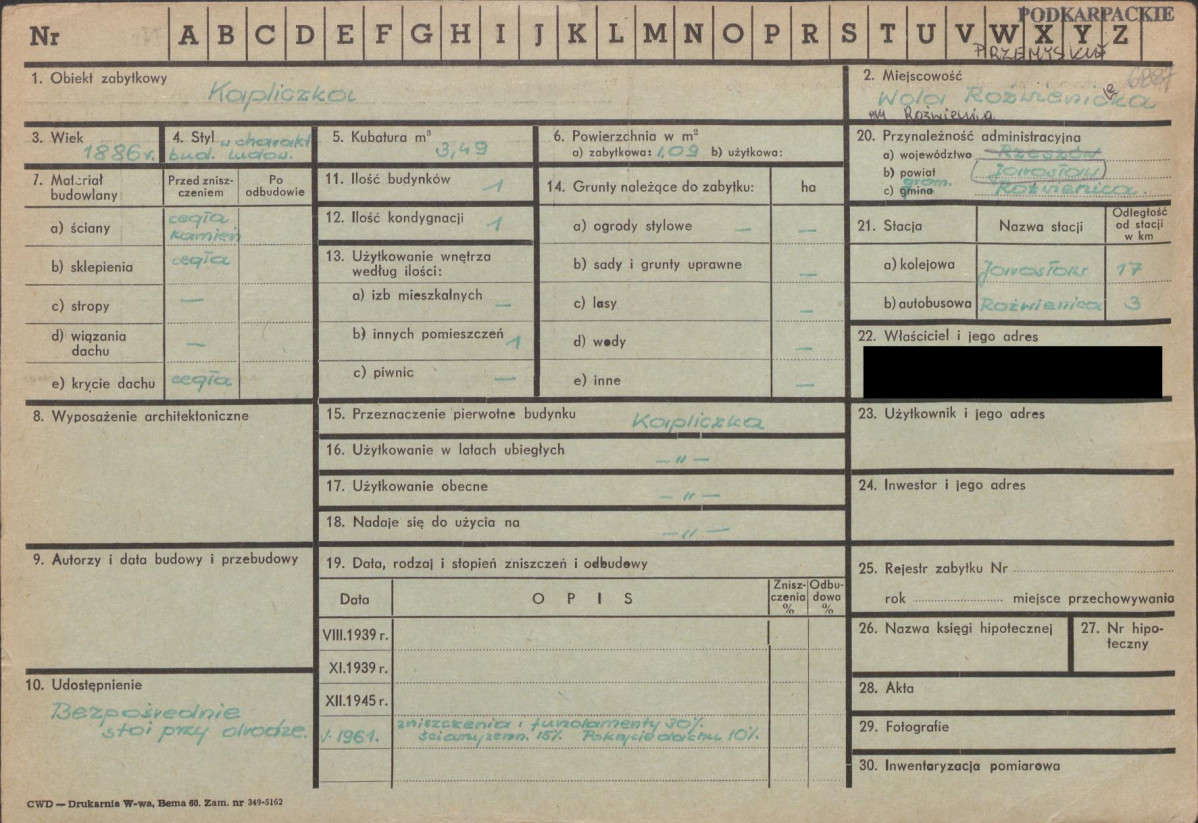 PODKARPACKIE
Nr A B C D E F G H I J K L M N O P R S T U V W X Y Z
PRZEMYSKIE
6887
1. Obiekt zabytkowy
Kapliczka
2. Miejscowość
Wola Roźwienicka
gm Roźwienica
3. Wiek
1886 r.
4. Styl w charakt.
bud. ludow.
5. Kubatura m³
3,49
6. Powierzchnia w m²
a) zabytkowa: 1,09 b) użytkowa:
20. Przynależność administracyjna
a) województwo Rzeszów
b) powiat Jarosław
grom.
c) gmina Roźwienica
7. Materiał budowlany
Przed zniszczeniem
Po odbudowie
a) ściany cegła kamień
b) sklepienia cegła
c) stropy —
d) wiązania dachu —
e) krycie dachu cegła
11. Ilość budynków 1
12. Ilość kondygnacji 1
13. Użytkowanie wnętrza
według ilości:
a) izb mieszkalnych —
b) innych pomieszczeń 1
c) piwnic —
14. Grunty należące do zabytku: ha
a) ogrody stylowe — —
b) sady i grunty uprawne —
c) lasy —
d) wody —
e) inne —
21. Stacja
Nazwa stacji
Odległość od stacji w km
a) kolejowa Jarosław 17
b) autobusowa Roźwienica 3
22. Właściciel i jego adres
8. Wyposażenie architektoniczne
15. Przeznaczenie pierwotne budynku
Kapliczka
16. Użytkowanie w latach ubiegłych
—„—
17. Użytkowanie obecne
—„—
18. Nadaje się do użycia na
—„—
23. Użytkownik i jego adres
24. Inwestor i jego adres
9. Autorzy i data budowy i przebudowy
19. Data, rodzaj i stopień zniszczeń i odbudowy
Data
OPIS
Zniszczenia %
Odbudowa %
VIII.1939 r.
XI.1939 r.
XII.1945 r.
V. 1961. zniszczenia: fundamenty 30%.
ściany zewn. 15% Pokrycie dachu 10%.
25. Rejestr zabytku Nr
rok miejsce przechowywania
26. Nazwa księgi hipotecznej
27. Nr hipoteczny
10. Udostępnienie
Bezpośrednie
stoi przy drodze.
28. Akta
29. Fotografie
30. Inwentaryzacja pomiarowa
CWD — Drukarnia W-wa, Bema 60. Zam. nr 349-5162